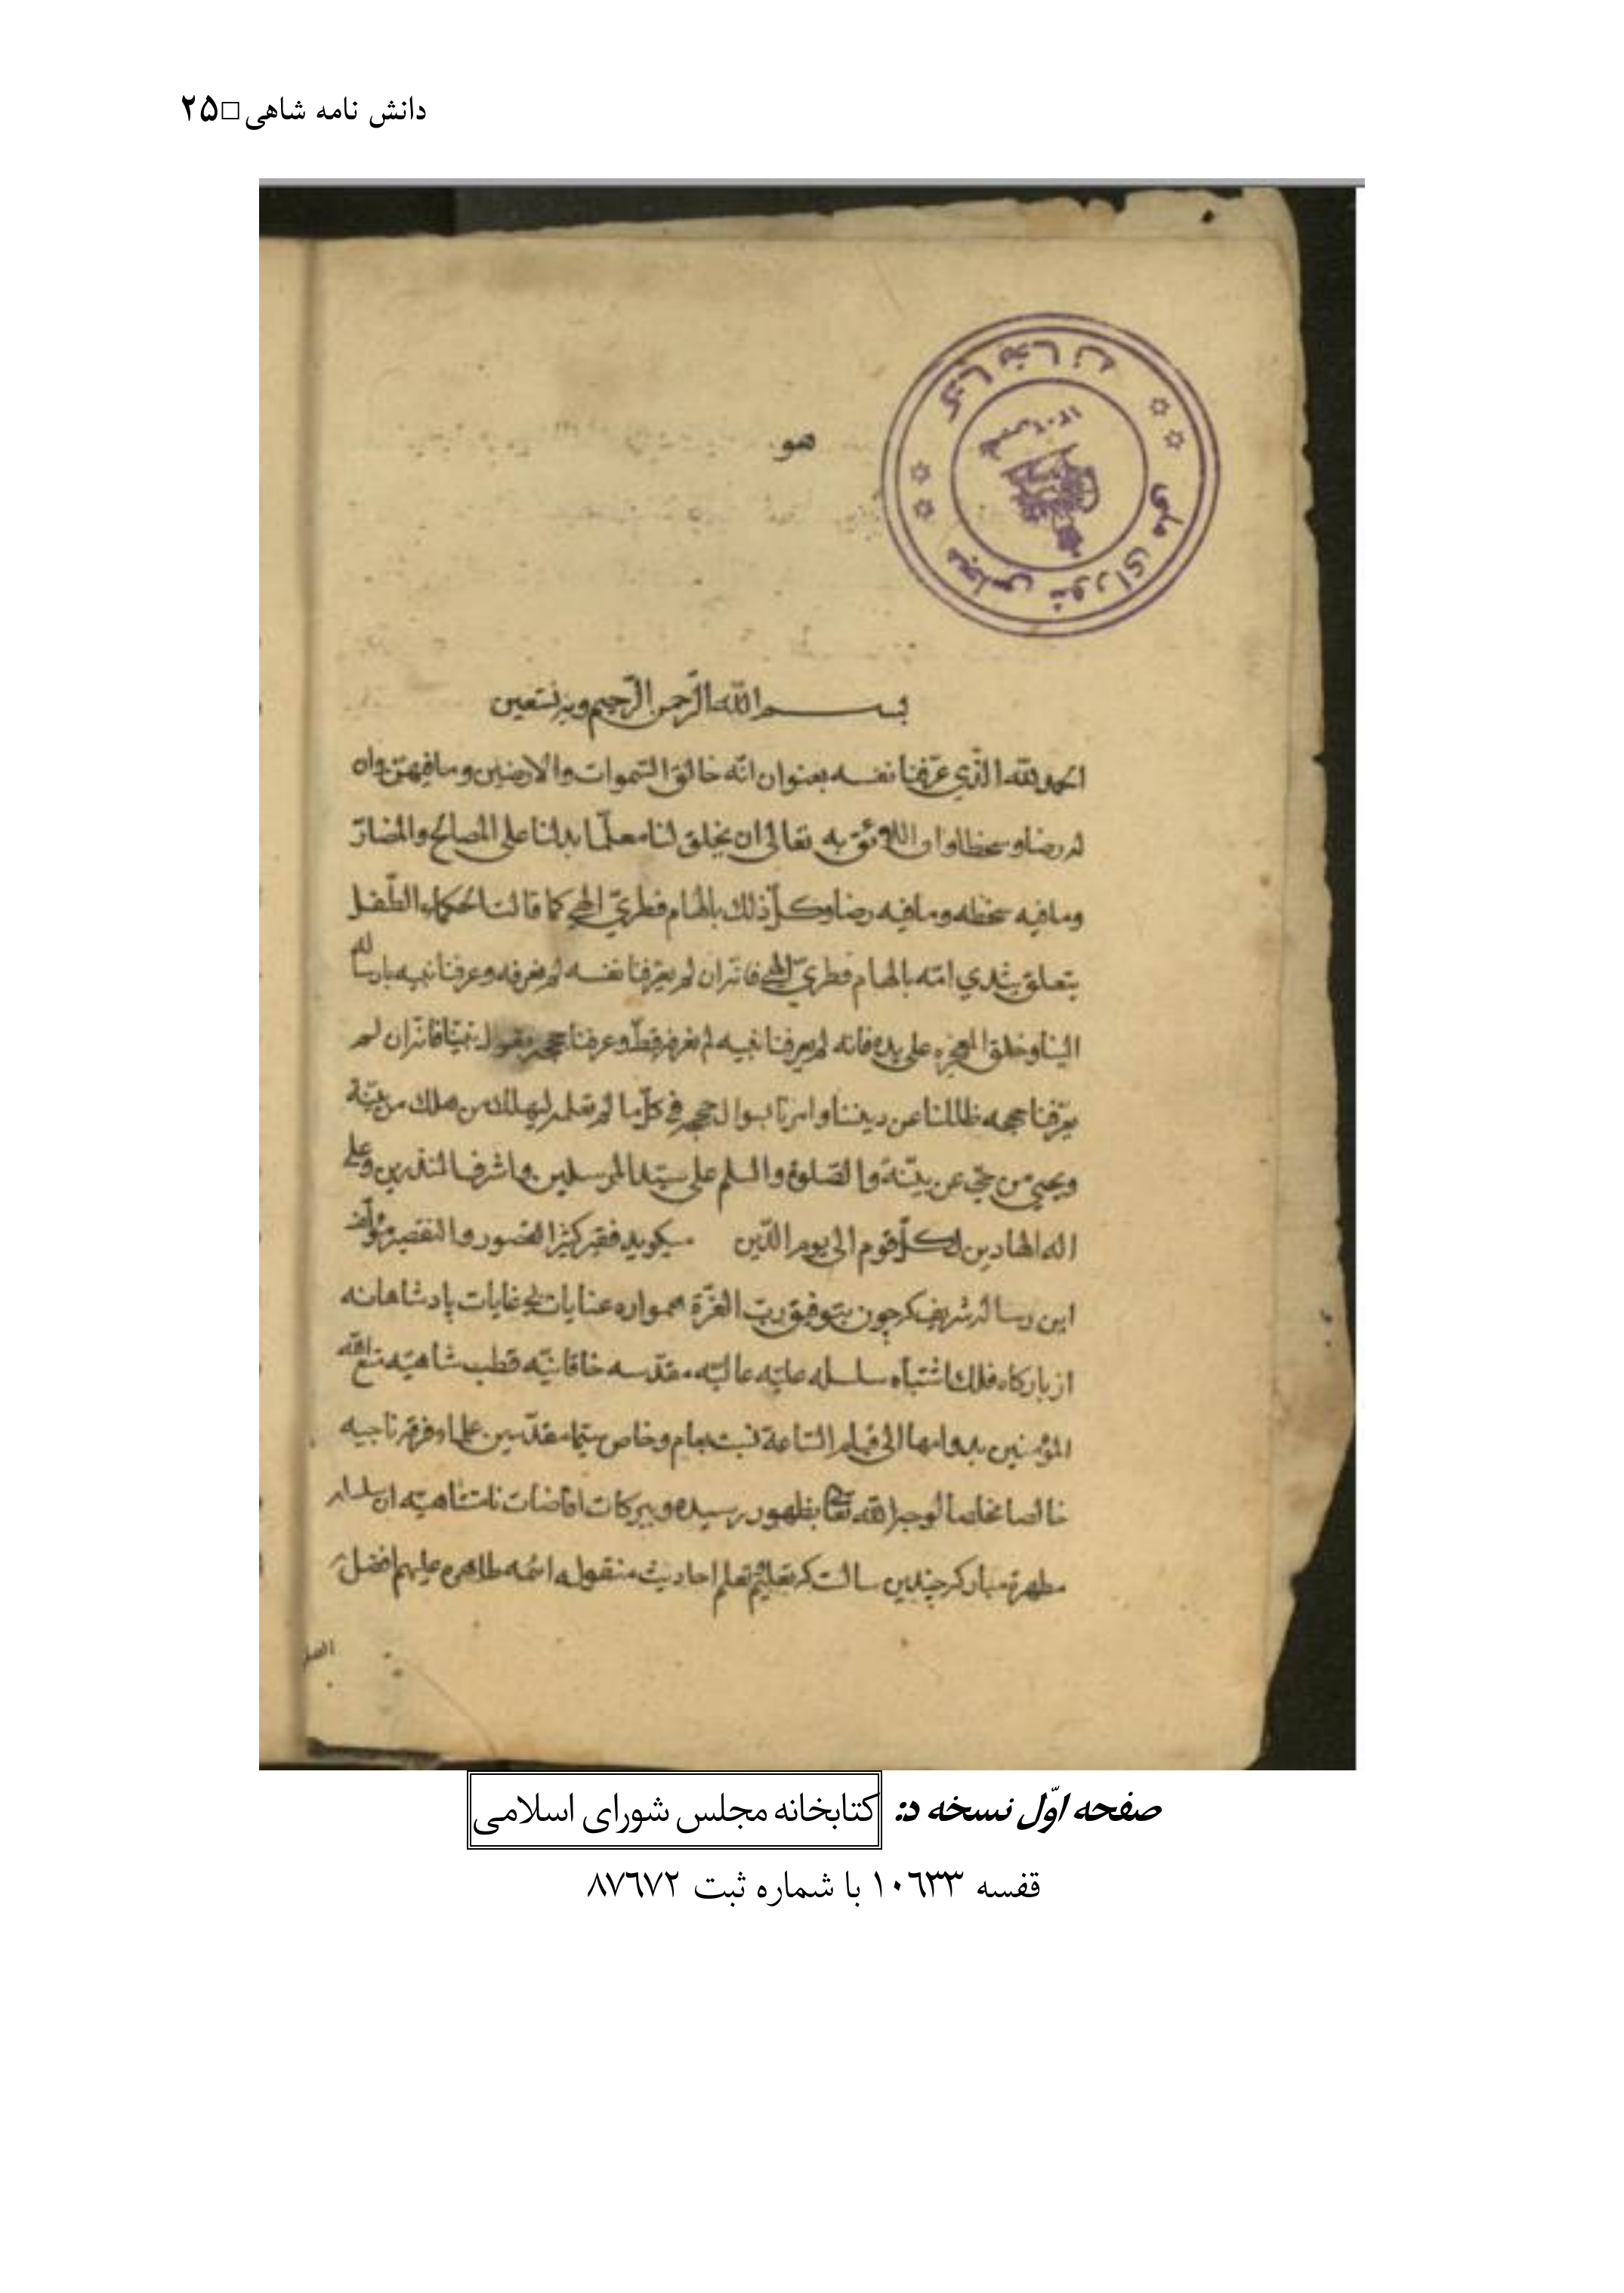 دانش نامه شاهی□۲۵
کتابخانه
مجلس شورای ملی
هو
بسم الله الرّحمن الرّحیم وبه نستعین
الحمد لله الّذي عرّفنا نفسه بعنوان انّه خالق السّموات والارضین وما فیهنّ وان
له رضا وسخطا وان اللائق به تعالی ان یخلق لنا معلّما یدلنا علی المصالح والمضارّ
وما فیه سخطه وما فیه رضاه وکلّ ذلك بالهام فطريّ الهي کما قالت الحکماء الطّفل
یتعلق بثدي امّه بالهام فطريّ الهي فانّه ان لم یعرفنا نفسه لم نعرفه وعرفنا نبیه بارساله
الینا وخلق المعجزه علی یده فانه لم یعرفنا نبیه لم نعرفه قطّ وعرفنا حججه بقول نبیّنا فانّه ان لم
یعرّفنا حججه ظللنا عن دیننا وامرنا بسوال حججه في کلّ ما لم نعلم لیهلك من هلك من بیّنة
ویحیی من حيّ عن بیّنة والصّلوة والسلم علی سیّد المرسلین واشرف المنذرین وعلی
اله الهادین لکلّ قوم الی یوم الدّین میکوید فقیر کثیر القصور والتقصیر مؤلّف
این رساله شریفه که چون بتوفیق ربّ العزّة همواره عنایات بی غایات پادشاهانه
از بارکاه فلك اشتباه سلسله علیّه عالیّه مقدّسه خاقانیّه قطب شاهیّه متّع الله
المؤمنین بدوامها الی قیام السّاعة نسبت بعام وخاص سیّما مقدّسین علماء فرقه ناجیه
خالصا مخلصا لوجه الله تعالی بظهور رسیده وببرکات افاضات نامتناهیّه ان سلسله
مطهرة مبارکه چندین سالست که بتعلیم وتعلم احادیث منقوله ائمه طاهره علیهم افضل
صفحه اوّل نسخه د: کتابخانه مجلس شورای اسلامی
قفسه ۱۰٦۳۳ با شماره ثبت ۸۷٦۷۲